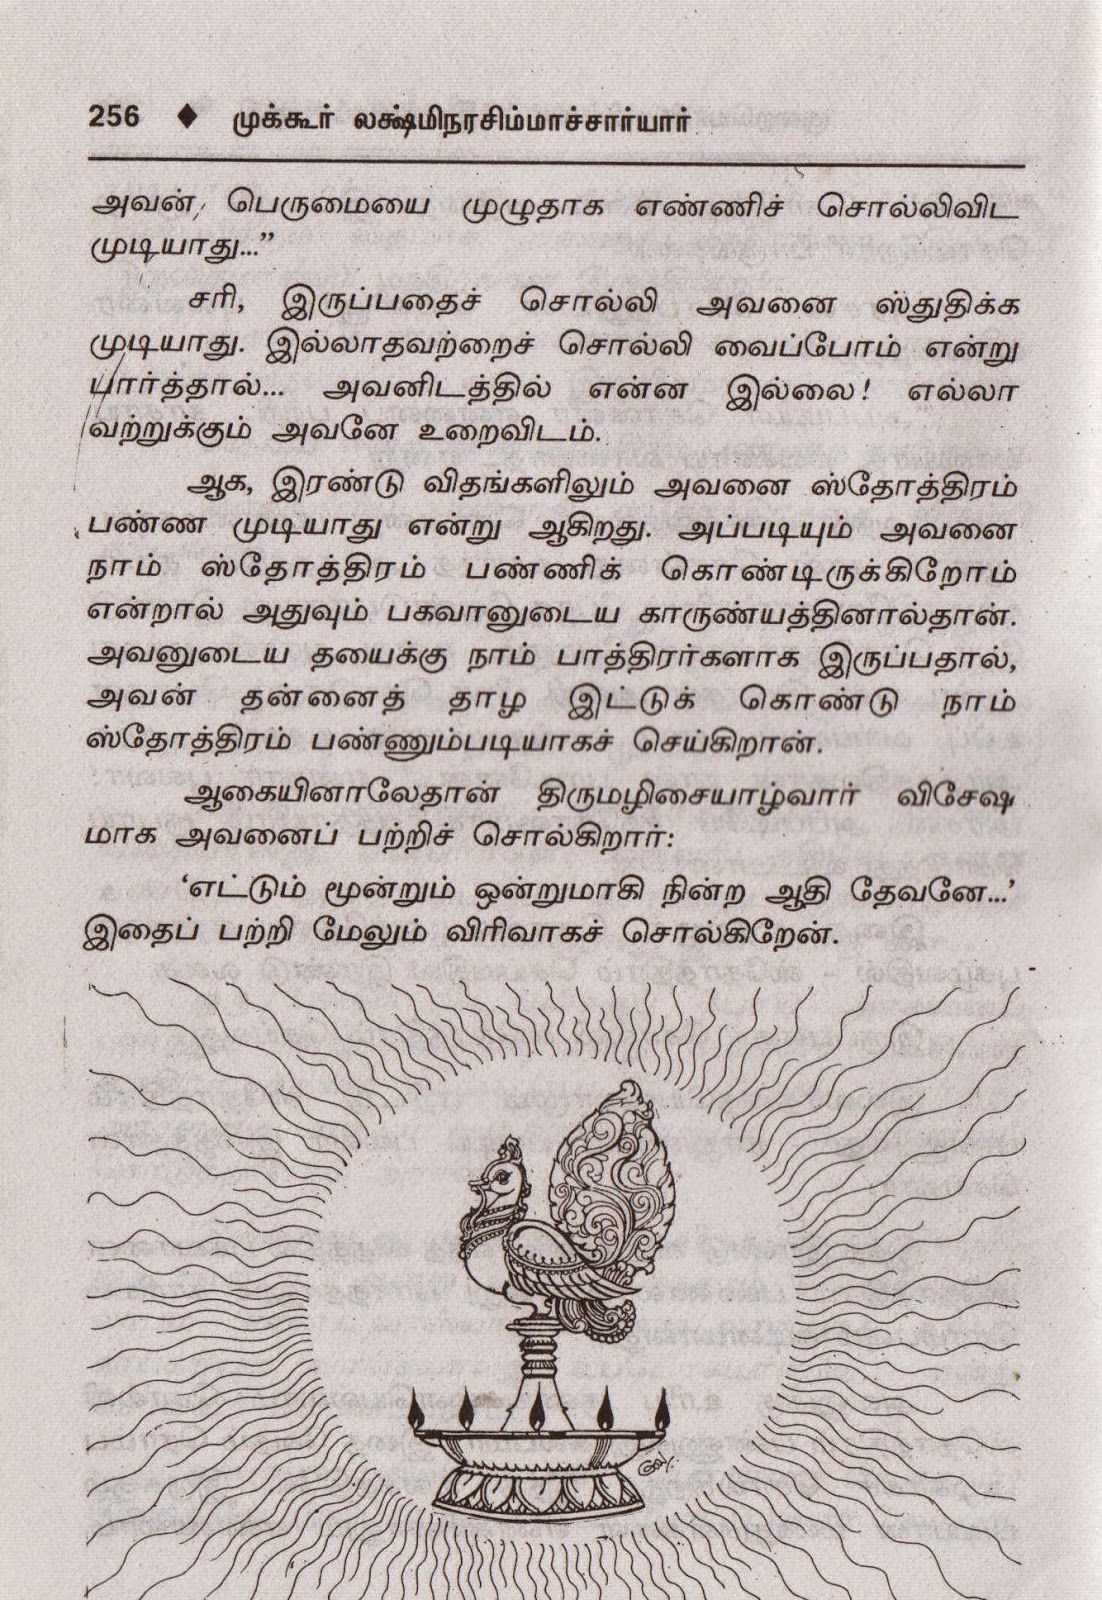 256 ◆ முக்கூர் லக்ஷ்மிநரசிம்மாச்சார்யார்
அவன் பெருமையை முழுதாக எண்ணிச் சொல்லிவிட
முடியாது...”
சரி, இருப்பதைச் சொல்லி அவனை ஸ்துதிக்க
முடியாது. இல்லாதவற்றைச் சொல்லி வைப்போம் என்று
பார்த்தால்... அவனிடத்தில் என்ன இல்லை! எல்லா
வற்றுக்கும் அவனே உறைவிடம்.
ஆக, இரண்டு விதங்களிலும் அவனை ஸ்தோத்திரம்
பண்ண முடியாது என்று ஆகிறது. அப்படியும் அவனை
நாம் ஸ்தோத்திரம் பண்ணிக் கொண்டிருக்கிறோம்
என்றால் அதுவும் பகவானுடைய காருண்யத்தினால்தான்.
அவனுடைய தயைக்கு நாம் பாத்திரர்களாக இருப்பதால்,
அவன் தன்னைத் தாழ இட்டுக் கொண்டு நாம்
ஸ்தோத்திரம் பண்ணும்படியாகச் செய்கிறான்.
ஆகையினாலேதான் திருமழிசையாழ்வார் விசேஷ
மாக அவனைப் பற்றிச் சொல்கிறார்:
‘எட்டும் மூன்றும் ஒன்றுமாகி நின்ற ஆதி தேவனே...’
இதைப் பற்றி மேலும் விரிவாகச் சொல்கிறேன்.